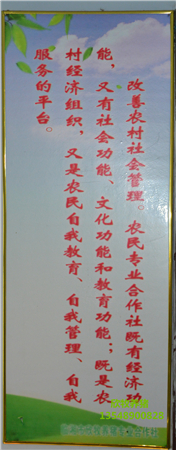 改善农村社会管理。农民专业合作社既有经济功
能，又有社会功能、文化功能和教育功能；既是农
村经济组织，又是农民自我教育、自我管理、自我
服务的平台。